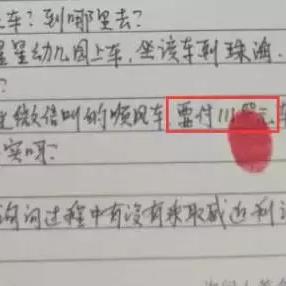 上车？到哪里去？
星星幼儿园上车，坐该车到珠海.
？
微信叫的顺风车，要付111元，车
实呀？
询问过程中有没有采取威迫利